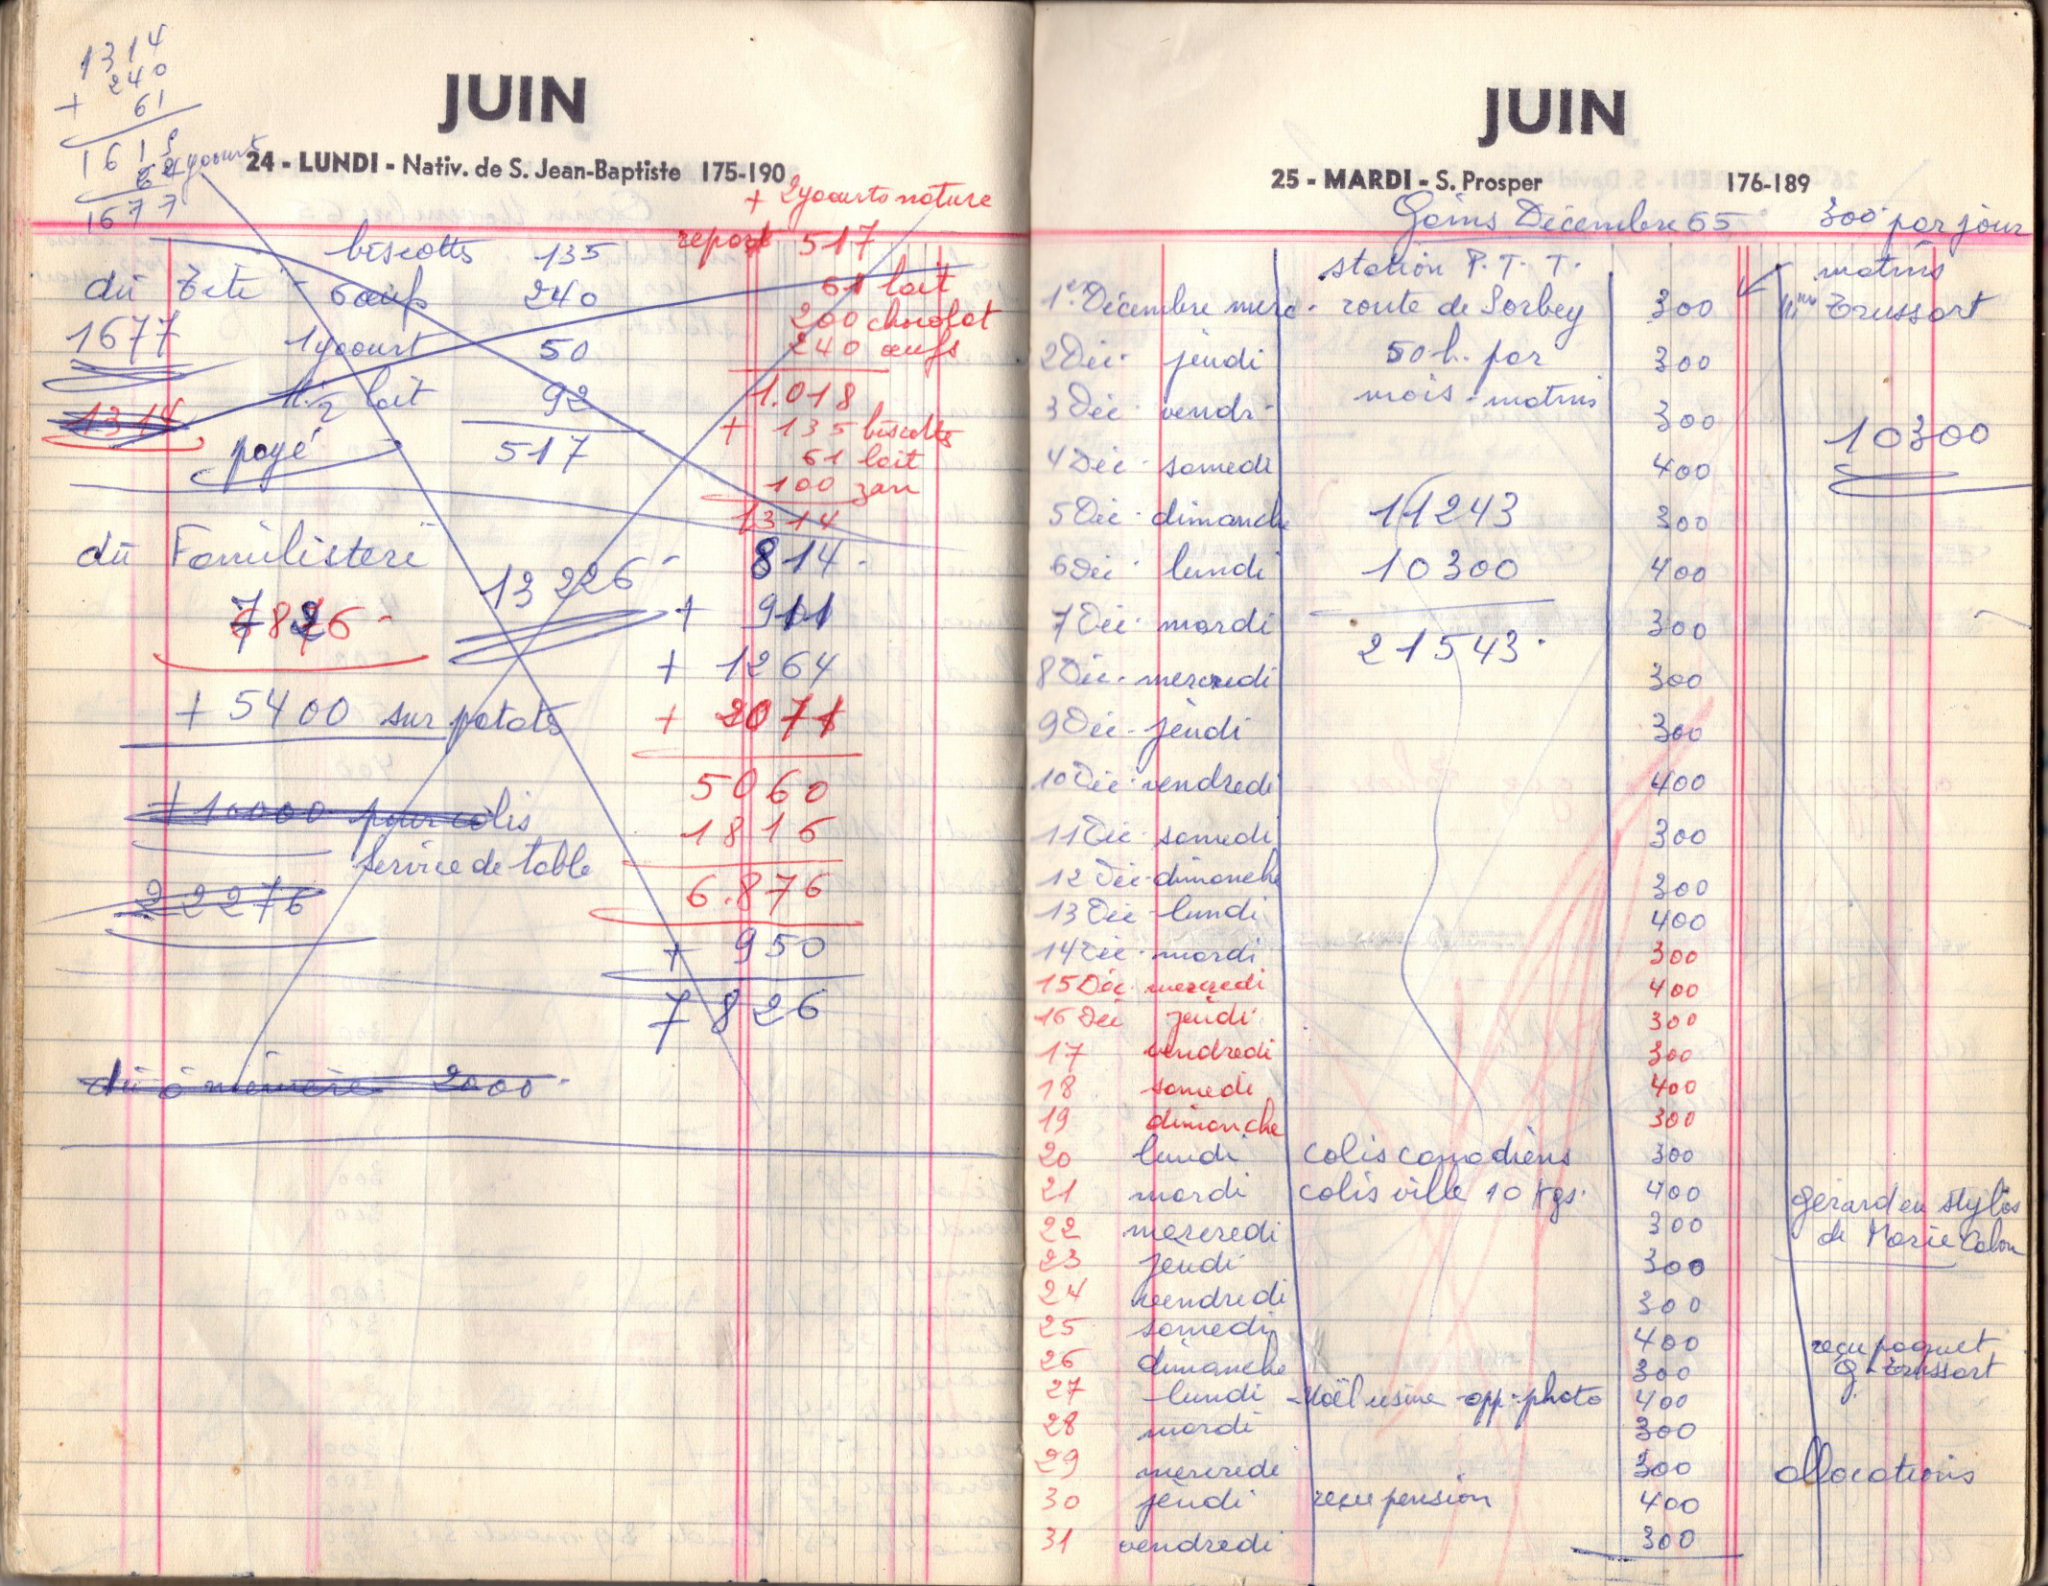 1314
240
+ 61
1615
62 yaourts
1677
JUIN
24 - LUNDI - Nativ. de S. Jean-Baptiste 175-190
+ 2 yaourts nature
biscottes 135
dû Tété - 6 œufs 240
1677 1 yaourt 50
1 1/2 lait 92
1314
payé 517
report 517
61 lait
200 chocolat
240 œufs
1.018
+ 135 biscottes
61 lait
100 zan
1314
dû Familistere
7826 -
13226 -
+ 5400 sur patates
+ 10000 pour colis
service de table
22276
814 -
+ 911
+ 1264
+ 2071
5060
1816
6.876
+ 950
7826
dû à mémère 2000 -
JUIN
25 - MARDI - S. Prosper 176-189
Gains Décembre 65 300 par jour
station P.T.T. matins
1er Décembre merc - route de Sorbey 300 Trussart
2 Déc - jeudi 50 h. par 300
3 Déc - vendr - mois - matins 300
10300
4 Déc - samedi 400
5 Déc - dimanche 11243 300
6 Déc - lundi 10300 400
7 Déc - mardi 21543 - 300
8 Déc - mercredi 300
9 Déc - jeudi 300
10 Déc - vendredi 400
11 Déc - samedi 300
12 Déc - dimanche 300
13 Déc - lundi 400
14 Déc - mardi 300
15 Déc - mercredi 400
16 Déc jeudi 300
17 vendredi 300
18 samedi 400
19 dimanche 300
20 lundi colis canadiens 300
21 mardi colis ville 10 kgs - 400 Gérard eu stylos
22 mercredi 300 de Marie
23 jeudi 300
24 vendredi 300
25 samedi 400 reçu paquet
26 dimanche 300 G. Trussart
27 - lundi - Noël usine - app - photo 400
28 mardi 300
29 mercredi 300 allocations
30 jeudi reçu pension 400
31 vendredi 300